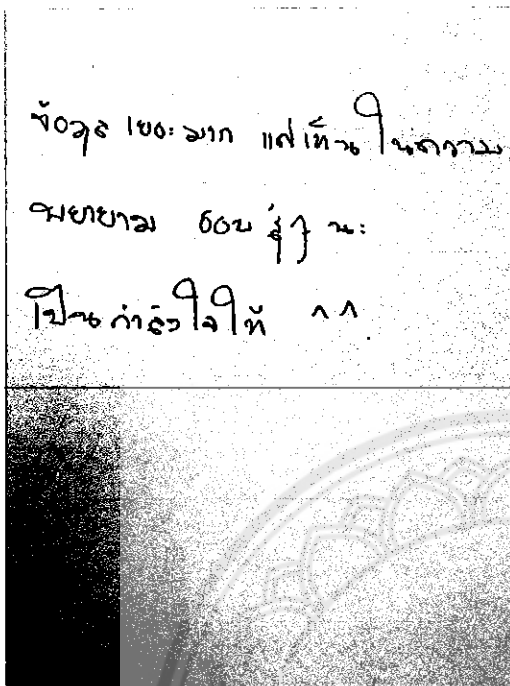 ข้อมูล เยอะมาก แต่เห็นในความ
พยายาม ขอบ สู้ๆ นะ
เป็นกำลังใจให้ ^^